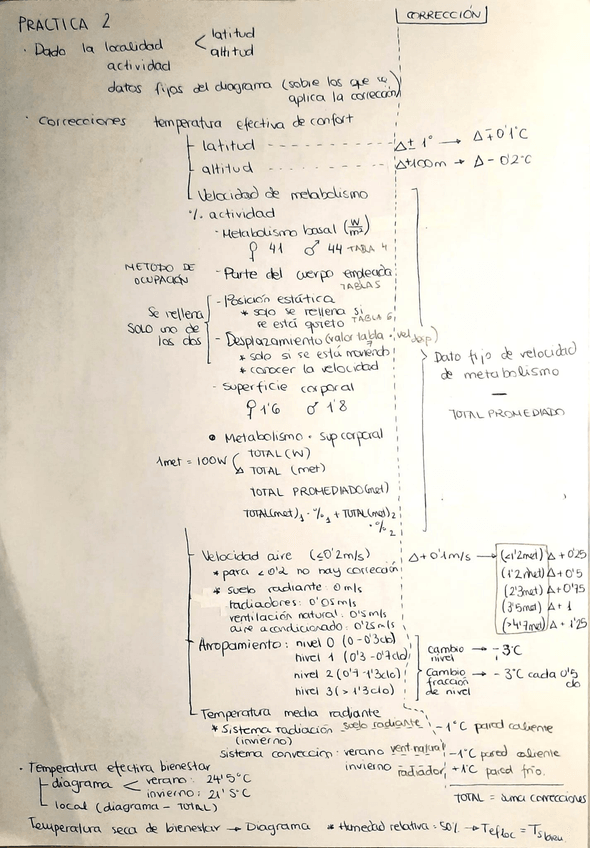 PRACTICA 2
CORRECCIÓN
· Dado la localidad < latitud
altitud
actividad
datos fijos del diagrama (sobre los que se
aplica la corrección)
· Correcciones temperatura efectiva de confort
latitud ---------- Δ ± 1° → Δ ∓ 0'1°C
altitud ---------- Δ+100m → Δ - 0'2°C
Velocidad de metabolismo
% actividad
- Metabolismo basal (W/m²)
♀ 41 ♂ 44 TABLA 4
METODO DE
OCUPACIÓN
- Parte del cuerpo empleada
TABLA 5
Se rellena
SOLO uno de
los dos
- Posición estática
* solo se rellena si
se está quieto TABLA 6
- Desplazamiento (valor tabla 7 · vel desp)
* solo si se está moviendo
* conocer la velocidad
Dato fijo de velocidad
de metabolismo
—
TOTAL PROMEDIADO
- Superficie corporal
♀ 1'6 ♂ 1'8
• Metabolismo · sup corporal
1met = 100W
TOTAL (W)
TOTAL (met)
TOTAL PROMEDIADO (met)
TOTAL(met)₁ · %₁ + TOTAL(met)₂
· %₂
Velocidad aire (≤0'2m/s) Δ+0'1m/s → (<1'2met) Δ + 0'25
* para <0'2 no hay corrección (1'2met) Δ + 0'5
* suelo radiante: 0 m/s (2'3met) Δ + 0'75
radiadores: 0'05m/s (3'5met) Δ + 1
ventilación natural: 0'5m/s (>4'7met) Δ + 1'25
aire acondicionado: 0'25m/s
Arropamiento: nivel 0 (0-0'3clo)
nivel 1 (0'3-0'7clo)
nivel 2 (0'7-1'3clo)
nivel 3 (>1'3clo)
cambio
nivel → -3°C
cambio
fracción
de nivel → -3°C cada 0'5
clo
Temperatura media radiante
* Sistema radiación suelo radiante -1°C pared caliente
(invierno)
sistema convección: verano vent natural -1°C pared caliente
invierno radiador +1°C pared frío.
TOTAL = suma correcciones
· Temperatura efectiva bienestar
diagrama < verano: 24'5°C
invierno: 21'5°C
local (diagrama - TOTAL)
Temperatura seca de bienestar → Diagrama * Humedad relativa = 50% → Tef loc = Ts bien.